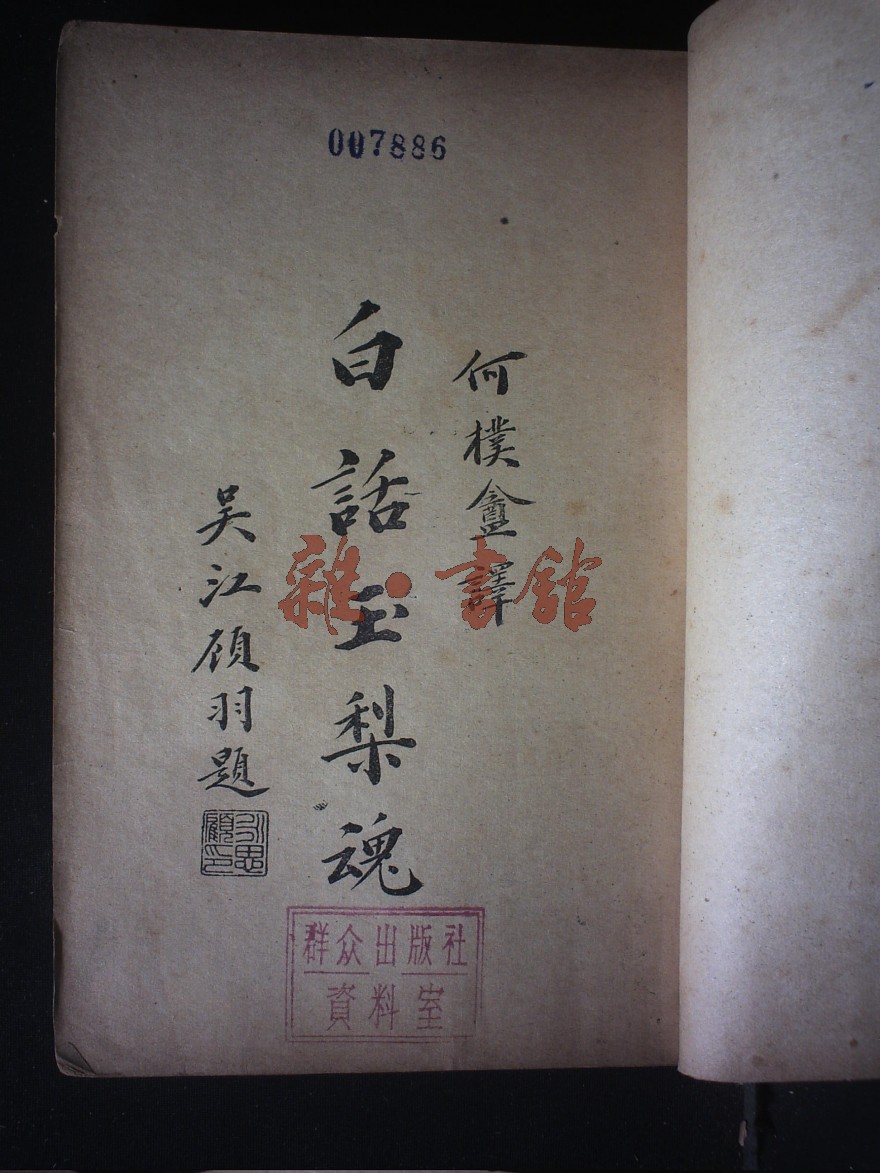 007886
何樸盦譯
白話玉梨魂
吳江顧羽題
雜·書館
群众出版社
資料室